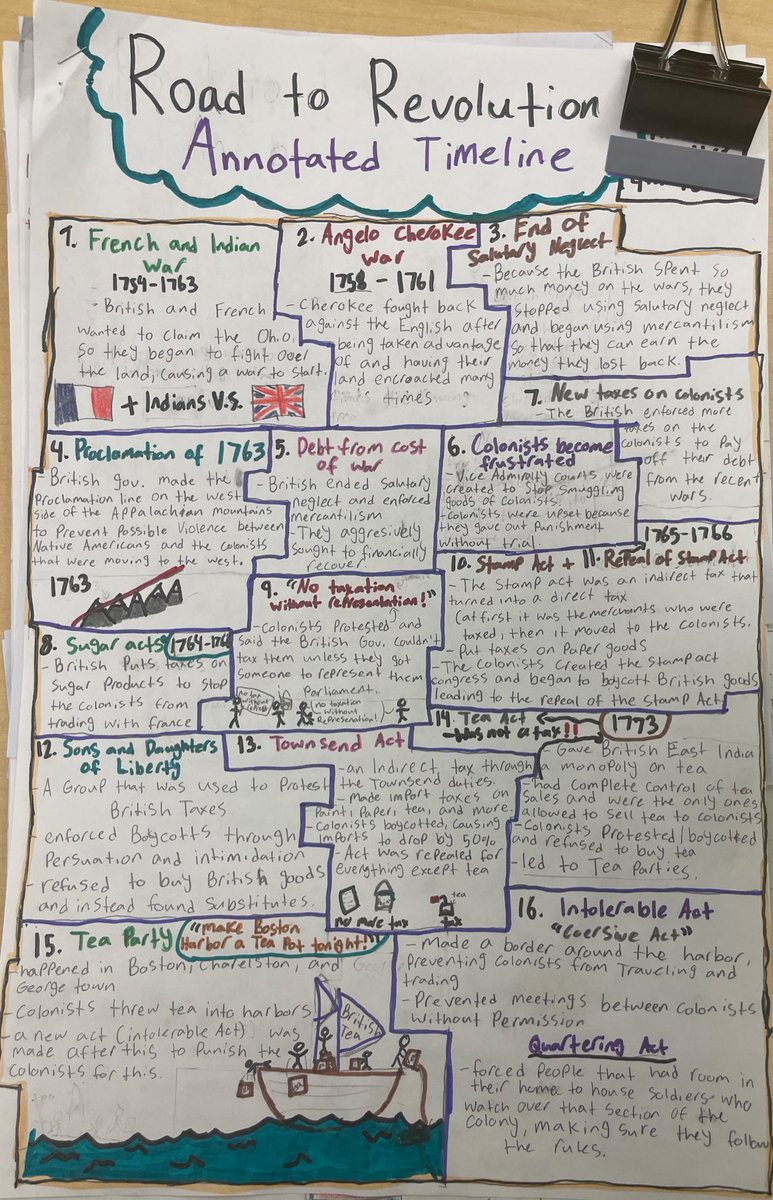 Road to Revolution
Annotated Timeline
1. French and Indian
War
1754-1763
- British and French
wanted to claim the Ohio
so they began to fight over
the land, causing a war to start.
+ Indians V.S.
2. Angelo Cherokee
War
1758 - 1761
- Cherokee fought back
against the English after
being taken advantage
of and having their
land encroached many
times
3. End of
Salutary Neglect
- Because the British spent so
much money on the wars, they
stopped using salutary neglect
and began using mercantilism
so that they can earn the
money they lost back.
4. Proclamation of 1763
- British gov. made the
Proclamation line on the west
side of the Appalachian mountains
to Prevent Possible Violence between
Native Americans and the colonists
that were moving to the west.
1763
5. Debt from cost
of war
- British ended Salutary
neglect and enforced
mercantilism
- They aggresively
sought to financially
recover
6. Colonists become
frustrated
- Vice Admiralty courts were
created to stop smuggling
goods of colonists.
- colonists were upset because
they gave out Punishment
without trial.
7. New taxes on colonists
- The British enforced more
taxes on the
colonists to Pay
off their debt
from the recent
wars.
8. Sugar acts 1764-1766
- British Puts taxes on
Sugar Products to stop
the colonists from
trading with france
9. "No taxation
without representation!"
- Colonists Protested and
said the British Gov. couldn't
tax them unless they got
someone to represent them
Parliament.
no tax
without
no taxation
without
Representation!
1765-1766
10. Stamp Act + 11. Repeal of Stamp Act
- The Stamp act was an indirect tax that
turned into a direct tax
(at first it was the merchants who were
taxed, then it moved to the colonists.
- Put taxes on Paper goods
- The colonists created the stamp act
congress and began to boycott British goods
leading to the repeal of the Stamp Act
12. Sons and Daughters
of Liberty
- A Group that was used to Protest
British Taxes
- enforced Boycotts through
Persuation and intimidation
- refused to buy British goods
and instead found substitutes.
13. Townsend Act
- an Indirect tax through
the Townsend duties.
- Made import taxes on
Paint, Paper, tea, and more.
- Colonists boycotted, causing
imports to drop by 50%
- Act was repealed for
everything except tea
no more tax
tea
tax
14. Tea Act 1773
- Was not a tax!!
- Gave British East India
a monopoly on tea
- had complete control of tea
sales and were the only ones
allowed to sell tea to colonists
- Colonists Protested/boycotted
and refused to buy tea
- led to Tea Parties.
15. Tea Party "make Boston
Harbor a Tea Pot tonight!"
happened in Boston, Charelston, and
George town
- Colonists threw tea into harbors
- a new act (intolerable Act) was
made after this to Punish the
colonists for this.
British
Tea
16. Intolerable Act
"Coersive Act"
- made a border around the harbor,
preventing colonists from Traveling and
trading
- Prevented meetings between colonists
without Permission
Quartering Act
- forced People that had room in
their home to house soldiers who
watch over that section of the
colony, making sure they follow
the rules.